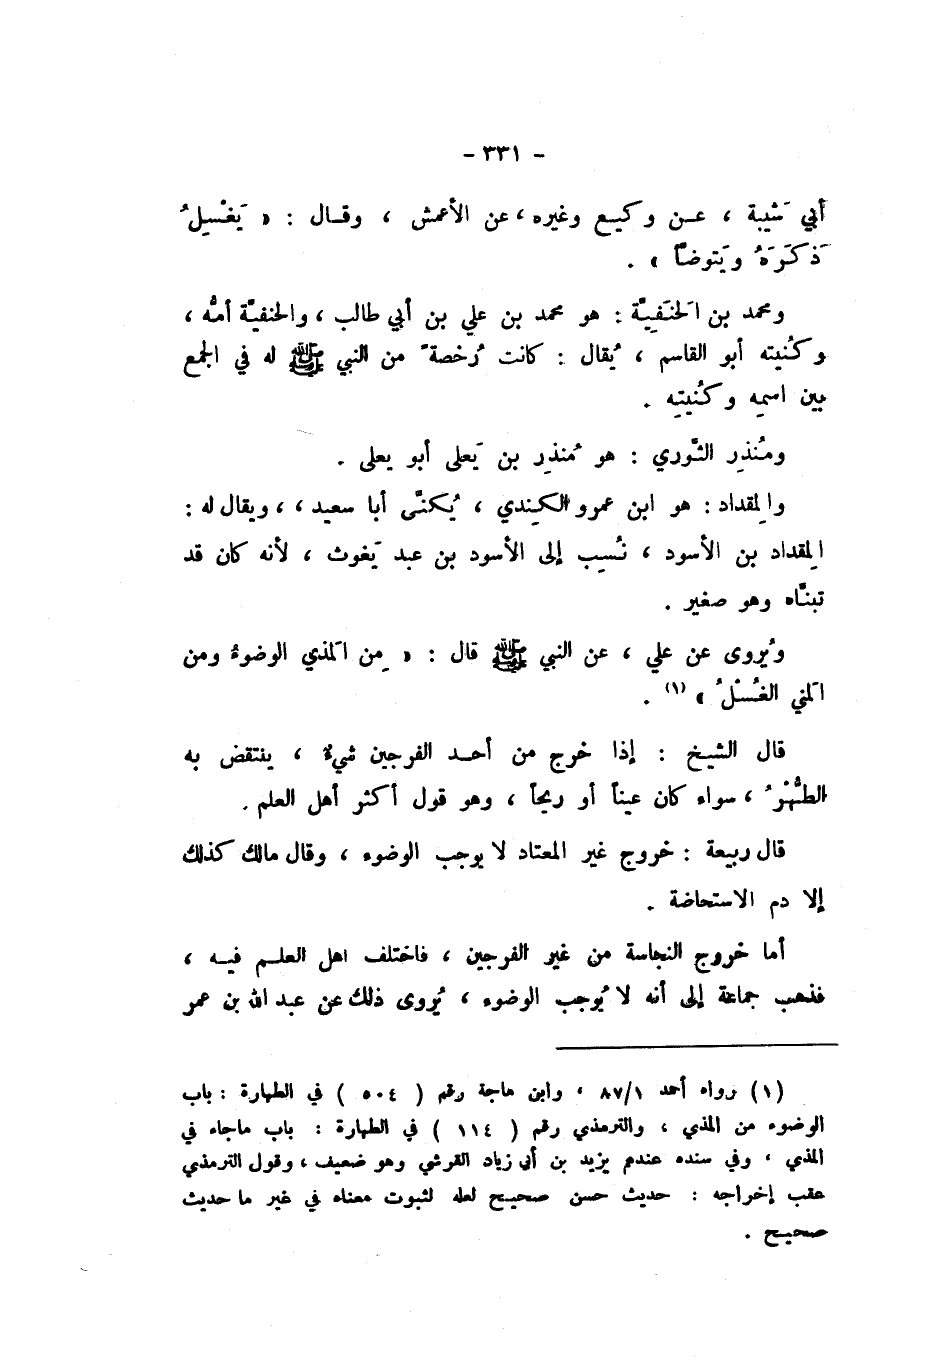 - ٣٣١ -
أبي شَيبة ، عـن وكيـع وغيره ، عن الأعمش ، وقـال : « يَغْسِلُ
ذَكَرَهُ ويَتوضأ » .
ومحمد بن الحَنَفِيَّة : هو محمد بن علي بن أبي طالب ، والحنفيَّة أمُّه ،
وكُنيته أبو القاسم ، يُقال : كانت رُخصةً من النبي ﷺ له في الجمع
بين اسمِه وكُنيتِه .
ومُنذِر الثَّوري : هو مُنذِر بن يَعلى أبو يعلى .
والمِقداد : هو ابن عمرو الكِندي ، يُكنَّى أبا سعيد ، ، ويقال له :
المِقداد بن الأسود ، نُسِب إلى الأسود بن عبد يَغوث ، لأنه كان قد
تبنَّاه وهو صغير .
ويُروى عن علي ، عن النبي ﷺ قال : « مِن المَذي الوضوءُ ومن
المَني الغُسْلُ » (١) .
قال الشيخ : إذا خرج من أحـد الفرجين شيءٌ ، ينتقض به
الطُّهْرُ ، سواء كان عيناً أو ريحاً ، وهو قول أكثر أهل العلم .
قال ربيعة : خروج غير المعتاد لا يوجب الوضوء ، وقال مالك كذلك
إلا دم الاستحاضة .
أما خروج النجاسة من غير الفرجين ، فاختلف اهل العلـم فيـه ،
فذهب جماعة إلى أنه لا يُوجب الوضوء ، يُروى ذلك عن عبد الله بن عمر
(١) رواه أحمد ٨٧/١ ، وابن ماجة رقم ( ٥٠٤ ) في الطهارة : باب
الوضوء من المذي ، والترمذي رقم ( ١١٤ ) في الطهارة : باب ماجاء في
المذي ، وفي سنده عندم يزيد بن أبي زياد القرشي وهو ضعيف ، وقول الترمذي
عقب إخراجه : حديث حسن صحيـح لعله لثبوت معناه في غير ما حديث
صحيـح .